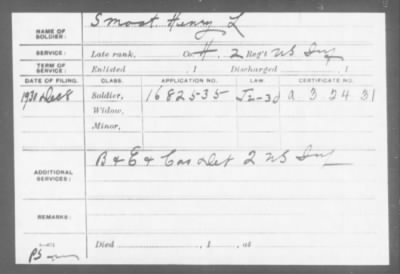 NAME OF SOLDIER: Smoot, Henry L
SERVICE: Late rank, Co. H, 2 Reg't US Inf
TERM OF SERVICE: Enlisted , 1 Discharged , 1
DATE OF FILING. CLASS. APPLICATION NO. LAW. CERTIFICATE NO.
1930 Dec 8 Soldier, 1682535 a 3 24 31
Widow,
Minor,
ADDITIONAL SERVICES: B & E & Cas Det 2 US Inf
REMARKS:
Died , 1 , at